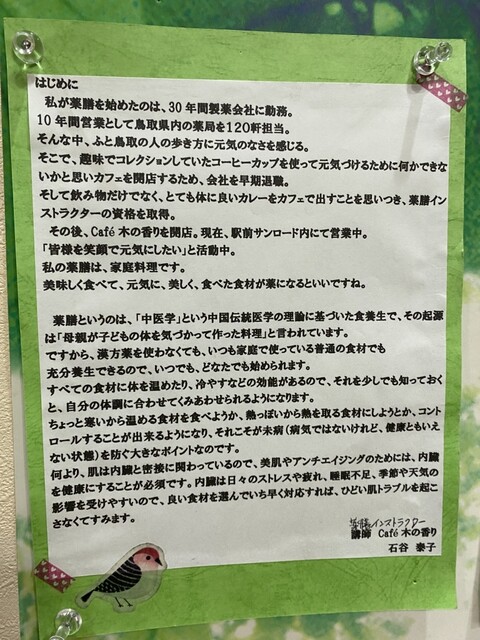 はじめに
私が薬膳を始めたのは、30年間製薬会社に勤務。
10年間営業として鳥取県内の薬局を120軒担当。
そんな中、ふと鳥取の人の歩き方に元気のなさを感じる。
そこで、趣味でコレクションしていたコーヒーカップを使って元気づけるために何かできな
いかと思いカフェを開店するため、会社を早期退職。
そして飲み物だけでなく、とても体に良いカレーをカフェで出すことを思いつき、薬膳イン
ストラクターの資格を取得。
その後、Café 木の香りを開店。現在、駅前サンロード内にて営業中。
「皆様を笑顔で元気にしたい」と活動中。
私の薬膳は、家庭料理です。
美味しく食べて、元気に、美しく、食べた食材が薬になるといいですね。
薬膳というのは、「中医学」という中国伝統医学の理論に基づいた食養生で、その起源
は「母親が子どもの体を気づかって作った料理」と言われています。
ですから、漢方薬を使わなくても、いつも家庭で使っている普通の食材でも
充分養生できるので、いつでも、どなたでも始められます。
すべての食材に体を温めたり、冷やすなどの効能があるので、それを少しでも知っておく
と、自分の体調に合わせてくみあわせられるようになります。
ちょっと寒いから温める食材を食べようか、熱っぽいから熱を取る食材にしようとか、コント
ロールすることが出来るようになり、それこそが未病(病気ではないけれど、健康ともいえ
ない状態)を防ぐ大きなポイントなのです。
何より、肌は内臓と密接に関わっているので、美肌やアンチエイジングのためには、内臓
を健康にすることが必須です。内臓は日々のストレスや疲れ、睡眠不足、季節や天気の
影響を受けやすいので、良い食材を選んでいち早く対応すれば、ひどい肌トラブルを起こ
さなくてすみます。
薬膳インストラクター
講師 Café 木の香り
石谷 泰子